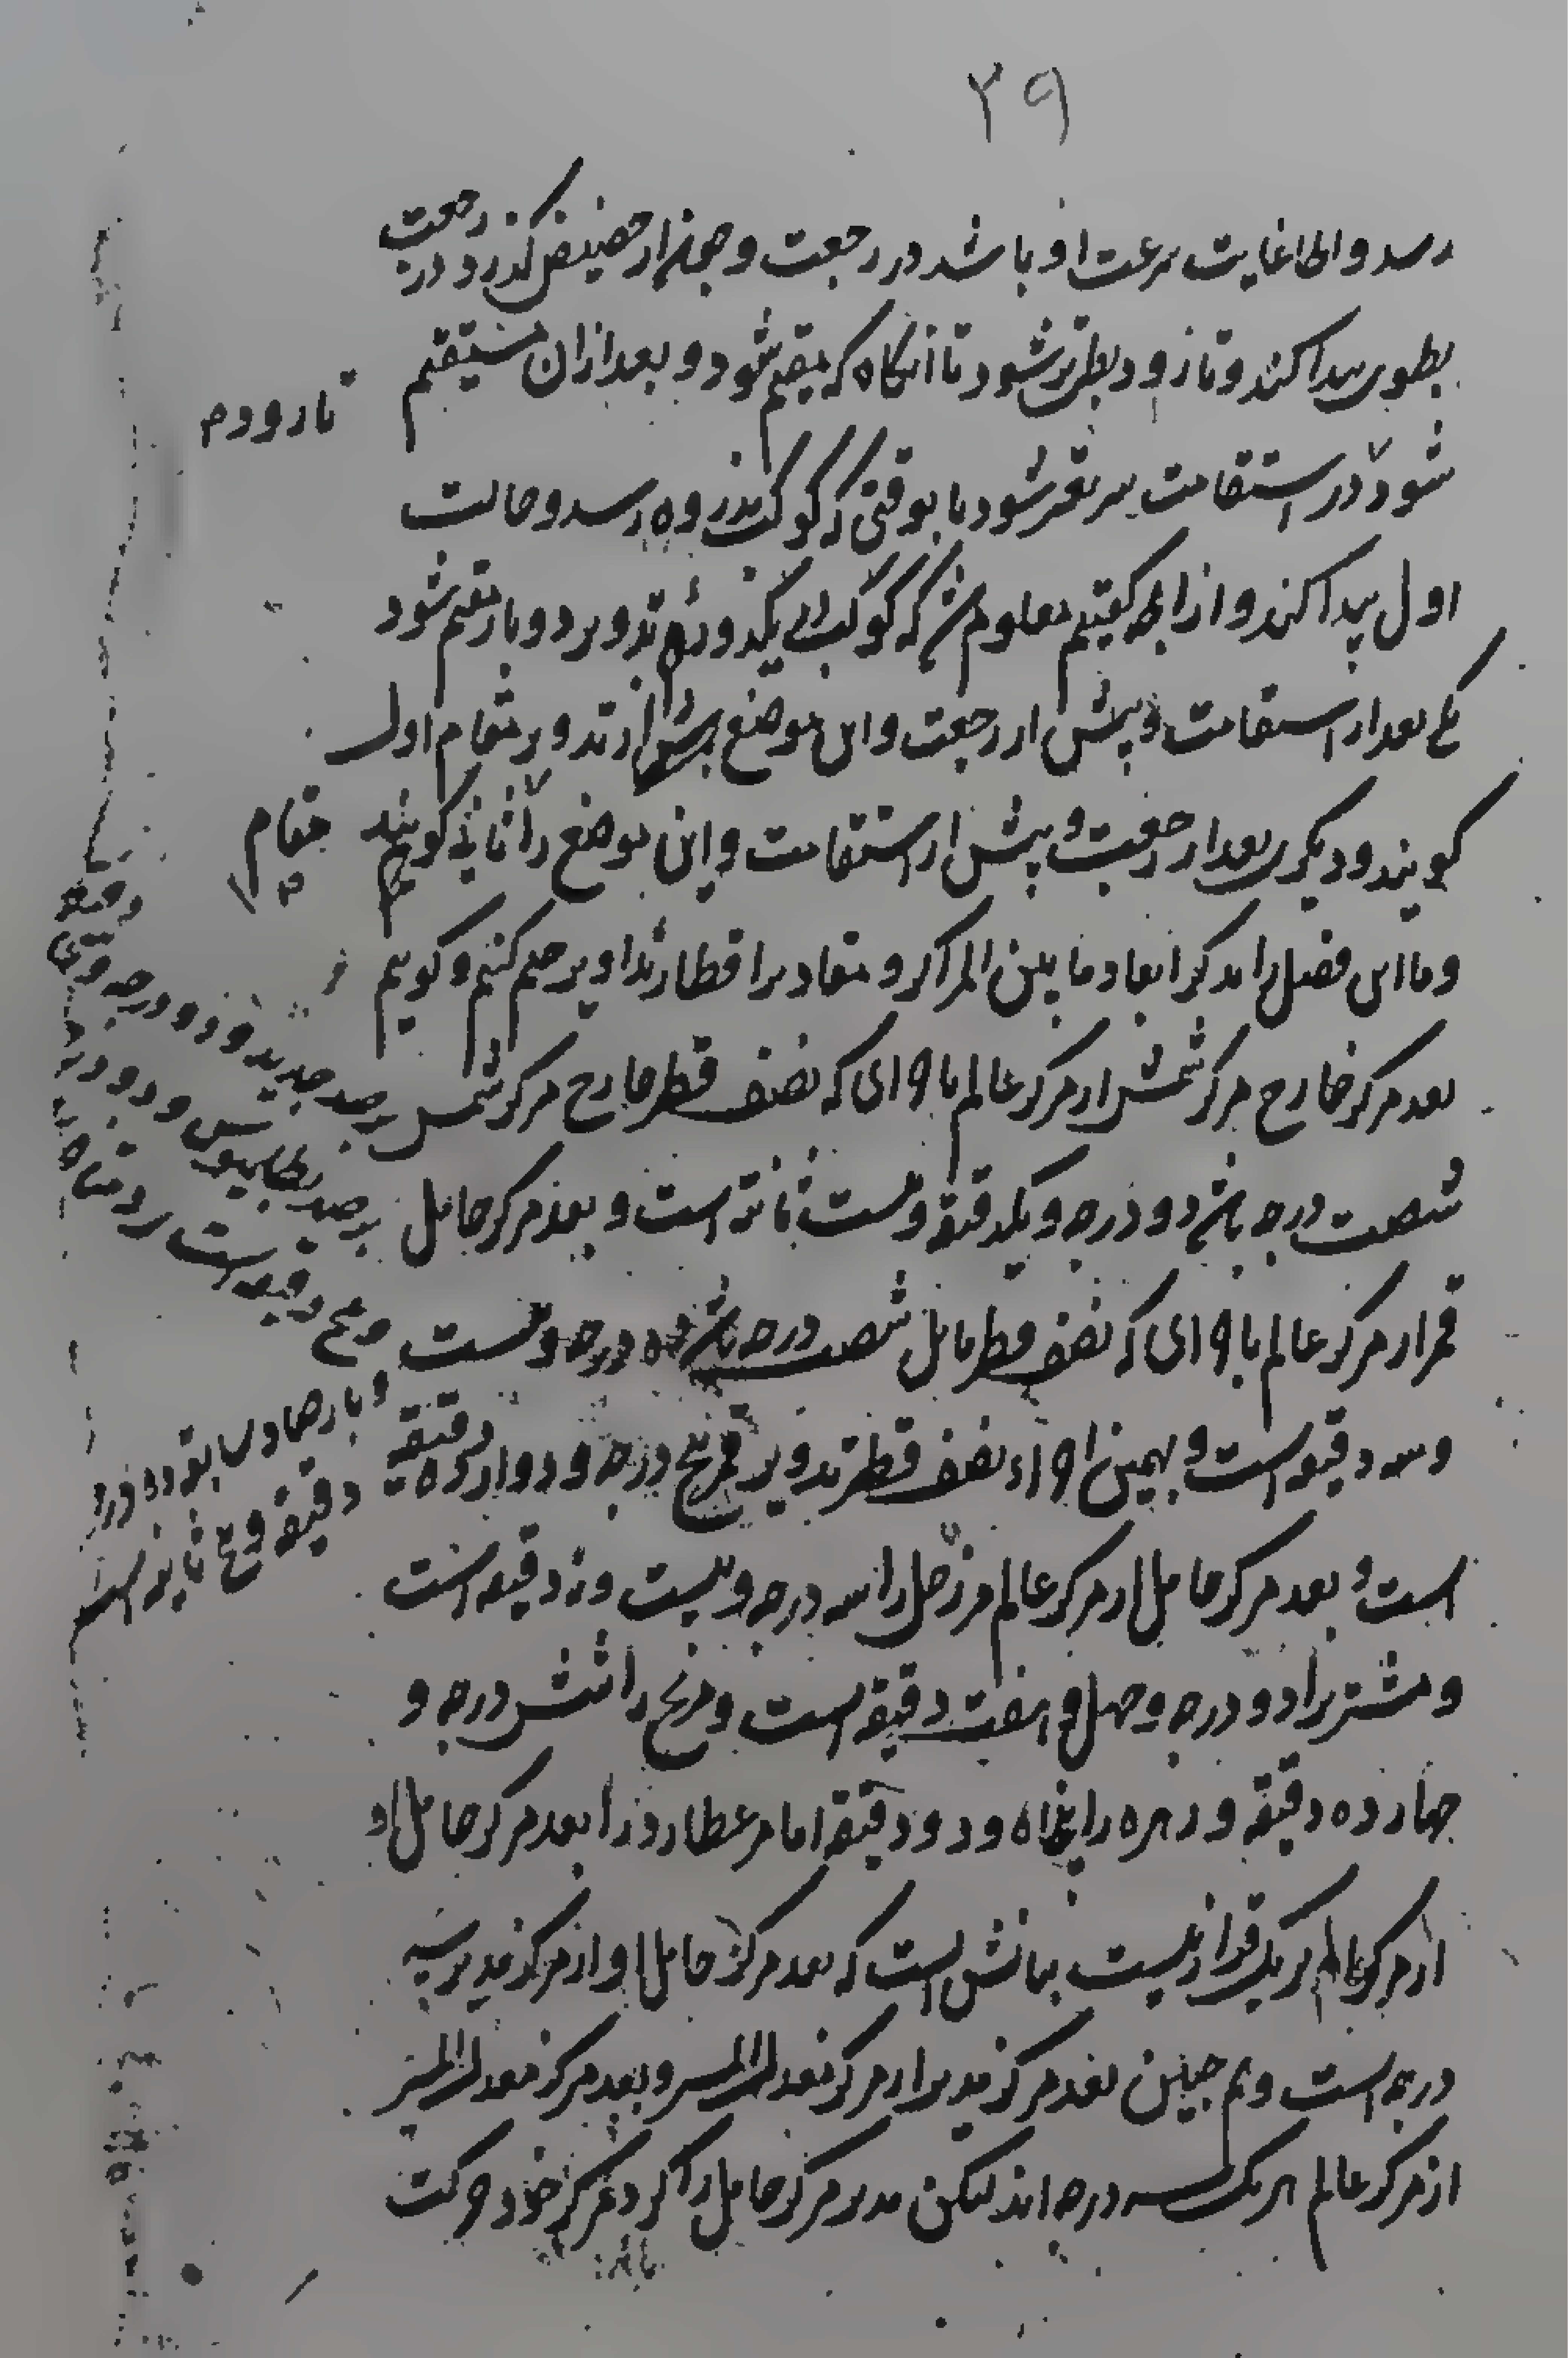 ۳۹
رسد و انجا غایت سرعت او باشد در رجعت و چون از حضیض گذرد در رجعت
بطوی پیدا کند و تا زود بطی‌تر شود تا آنگاه که مقیم شود و بعد از آن مستقیم
تا زود دم
شود در استقامت سریعتر شود تا بوقتی که کوکب بذروه رسد و حالت
اول پیدا کند و از انچه گفتیم معلوم شد که کوکب را در یکدوره تدویر دو بار مقیم شود
یکی بعد از استقامت و پیش از رجعت و این موضع را از تدویر مقام اول
گویند و دیگری بعد از رجعت و پیش از استقامت و این موضع را ثانی گویند
مقام
و ما این فصل را بذکر ابعاد ما بین المراکز و مقادیر اقطار تداویر ختم کنیم و گوییم
بعد مرکز خارج مرکز شمس از مرکز عالم باجزای که نصف قطر خارج مرکز شمس
شصت درجه باشد دو درجه و یکدقیقه و بیست ثانیه است و بعد مرکز حامل
قمر از مرکز عالم باجزای که نصف قطر مایل شصت درجه باشد ده درجه و بیست
و سه دقیقه است و بهمین اجزاء نصف قطر تدویر قمر پنج درجه و دوازده دقیقه
است و بعد مرکز حامل از مرکز عالم مر زحل را سه درجه و بیست و نه دقیقه است
و مشتریرا دو درجه و چهل و هفت دقیقه است و مریخ را شش درجه و
چهارده دقیقه و زهره را پنجاه و دو دقیقه اما مر عطارد را بعد مرکز حامل او
از مرکز عالم بر یک قرار نیست بمانش است که بعد مرکز حامل او از مرکز مدیر سه
درجه است و هم چنین بعد مرکز مدیر از مرکز معدل المسیر و بعد مرکز معدل المسیر
از مرکز عالم هر یک سه درجه اند لیکن مدیر مرکز حامل را گرد مرکز خود حرکت
برصد جدید و دو درجه و سی
دقیقه
برصد بطلمیوس و دو درجه
و پنج دقیقه است
و بارصاد دیگر بود ده درجه
دقیقه و پنج ثانیه است